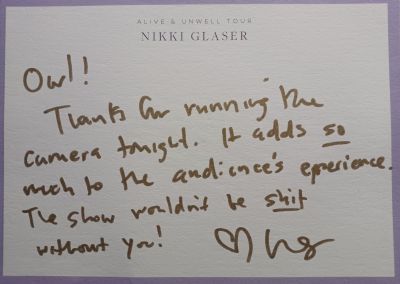 ALIVE & UNWELL TOUR
NIKKI GLASER
Owl!!
Thanks for running the
camera tonight. It adds so
much to the audience's experience.
The show wouldn't be shit
without you!